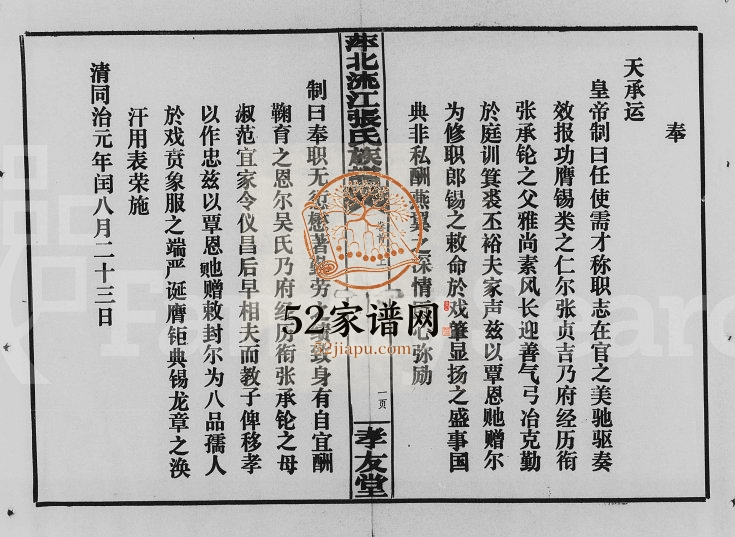 奉
天承运
皇帝制曰任使需才称职志在官之美驰驱奏
效报功膺锡类之仁尔张贞吉乃府经历衔
张承轮之父雅尚素风长迎善气弓冶克勤
於庭训箕裘丕裕夫家声兹以覃恩貤赠尔
为修职郎锡之敕命於戏肇显扬之盛事国
典非私酬燕翼之深情 心弥励
萍北流江張氏族
一页
孝友堂
制曰奉职无 懋著 劳之 致身有自宜酬
鞠育之恩尔吴氏乃府经历衔张承轮之母
淑范宜家令仪昌后早相夫而教子俾移孝
以作忠兹以覃恩貤赠敕封尔为八品孺人
於戏贲象服之端严诞膺钜典锡龙章之涣
汗用表荣施
清同治元年闰八月二十三日
52家谱网
52jiapu.com